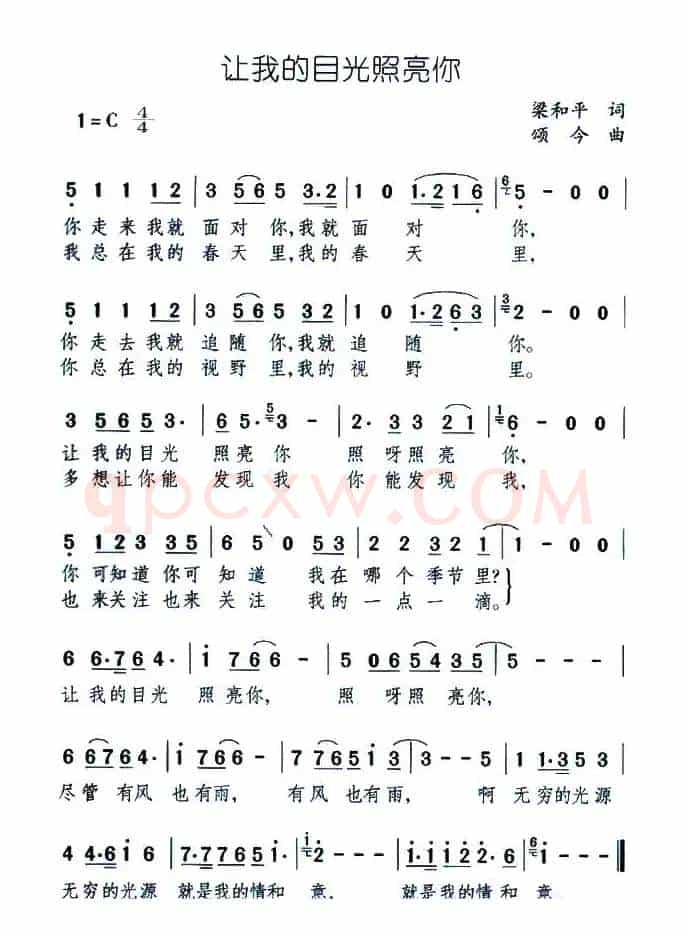 让我的目光照亮你
1=C 4/4
梁和平 词
颂今 曲
5 1 1 1 12 | 3 565 3·2 | 1 0 1·216 | 6 5 - 0 0 |
你走来我就面对你,我就面对你,
我总在我的春天里,我的春天里,
5 1 1 12 | 3 565 32 | 1 0 1·263 | 3 2 - 0 0 |
你走去我就追随你,我就追随你。
你总在我的视野里,我的视野里。
3 5653· | 65· 5 3 - | 2· 33 21 | 1 6 - 0 0 |
让我的目光照亮你 照呀照亮你,
多想让你能发现我 你能发现我,
qpcxw.COM
5 123 35 | 65 0 53 | 2 2 32 1 | 1 - 0 0
你可知道你可知道 我在哪个季节里?
也来关注也来关注 我的一点一滴。
6 6·764· | i 766 - | 5 065435 | 5 - - - |
让我的目光 照亮你, 照呀照亮你,
6 6764· | i 766 - | 7 765i3 | 3 - - 5 | 1 1·353
尽管有风也有雨, 有风也有雨, 啊 无穷的光源
4 4·6i 6 | 7·7765i· | i 2 - - | i·ii22·6 | 6 i - -
无穷的光源 就是我的情和意, 就是我的情和意。